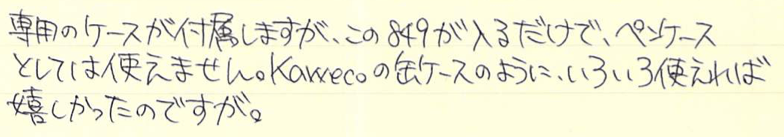 専用のケースが付属しますが、この849が入るだけで、ペンケース
としては使えません。Kawecoの缶ケースのように、いろいろ使えれば
嬉しかったのですが。